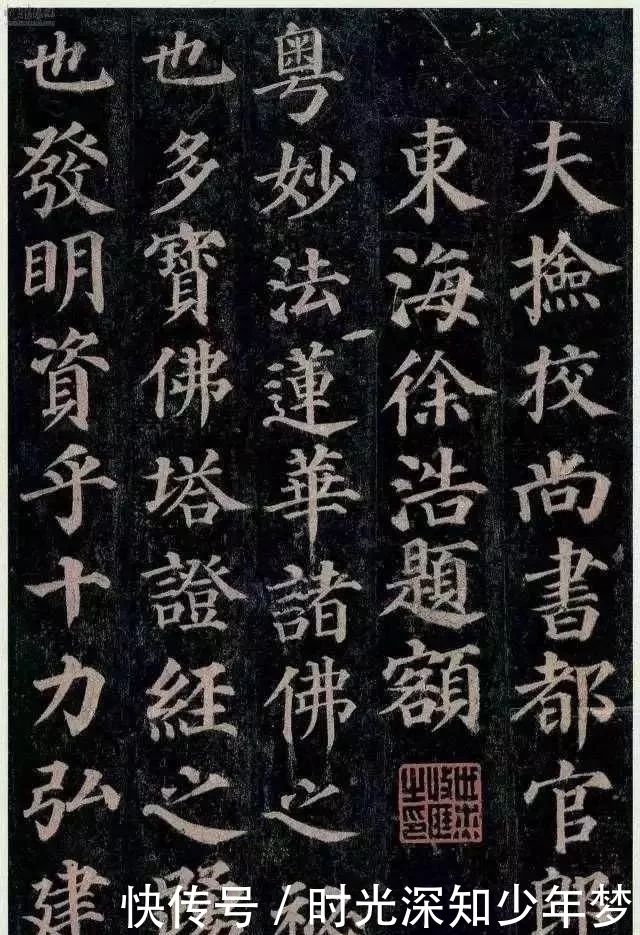 夫撿挍尚書都官郎
東海徐浩題額
粤妙法蓮華諸佛之祕
也多寶佛塔證經之
也發明資乎十力弘建
快传号 / 时光深知少年梦